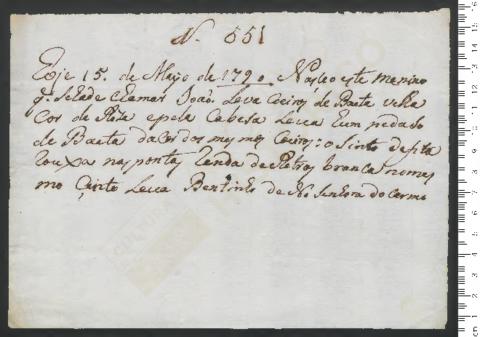 N. 551
Oje 15. de Mayo de 1790 Naseo este menino
q. se hade chamar João Leva Coeiros de Baeta velha
Cor de Roza e pela Cabesa Leva hum pedaso
de Baeta da Cor dos mesmos Coeiros: o Sinto de fita
Rouxa nas pontas Renda de Retros branca no mes
mo Cinto Leva Bentinho de No Senhora do Carmo